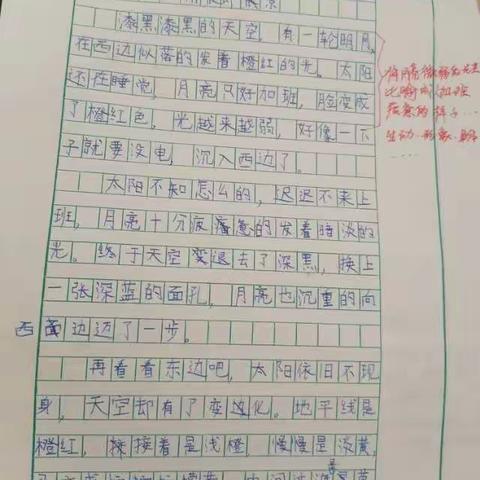 漆黑漆黑的天空,有一轮明月,
在西边似落的发着橙红的光。太阳
还在睡觉,月亮只好加班,脸变成
了橙红色,光越来越弱,好像一下
子就要没电,沉入西边了。
太阳不知怎么的,迟迟不来上
班,月亮十分疲惫的发着暗淡的
光。终于天空变退去了深黑,换上
一张深蓝的面孔,月亮也沉重的向
西面边迈了一步。
再看看东边吧,太阳依旧不现
身,天空却有了变化。地平线是
橙红,接着是浅橙,慢慢是淡黄,
将月亮
比喻成
疲惫的样子...
生动、形象
......